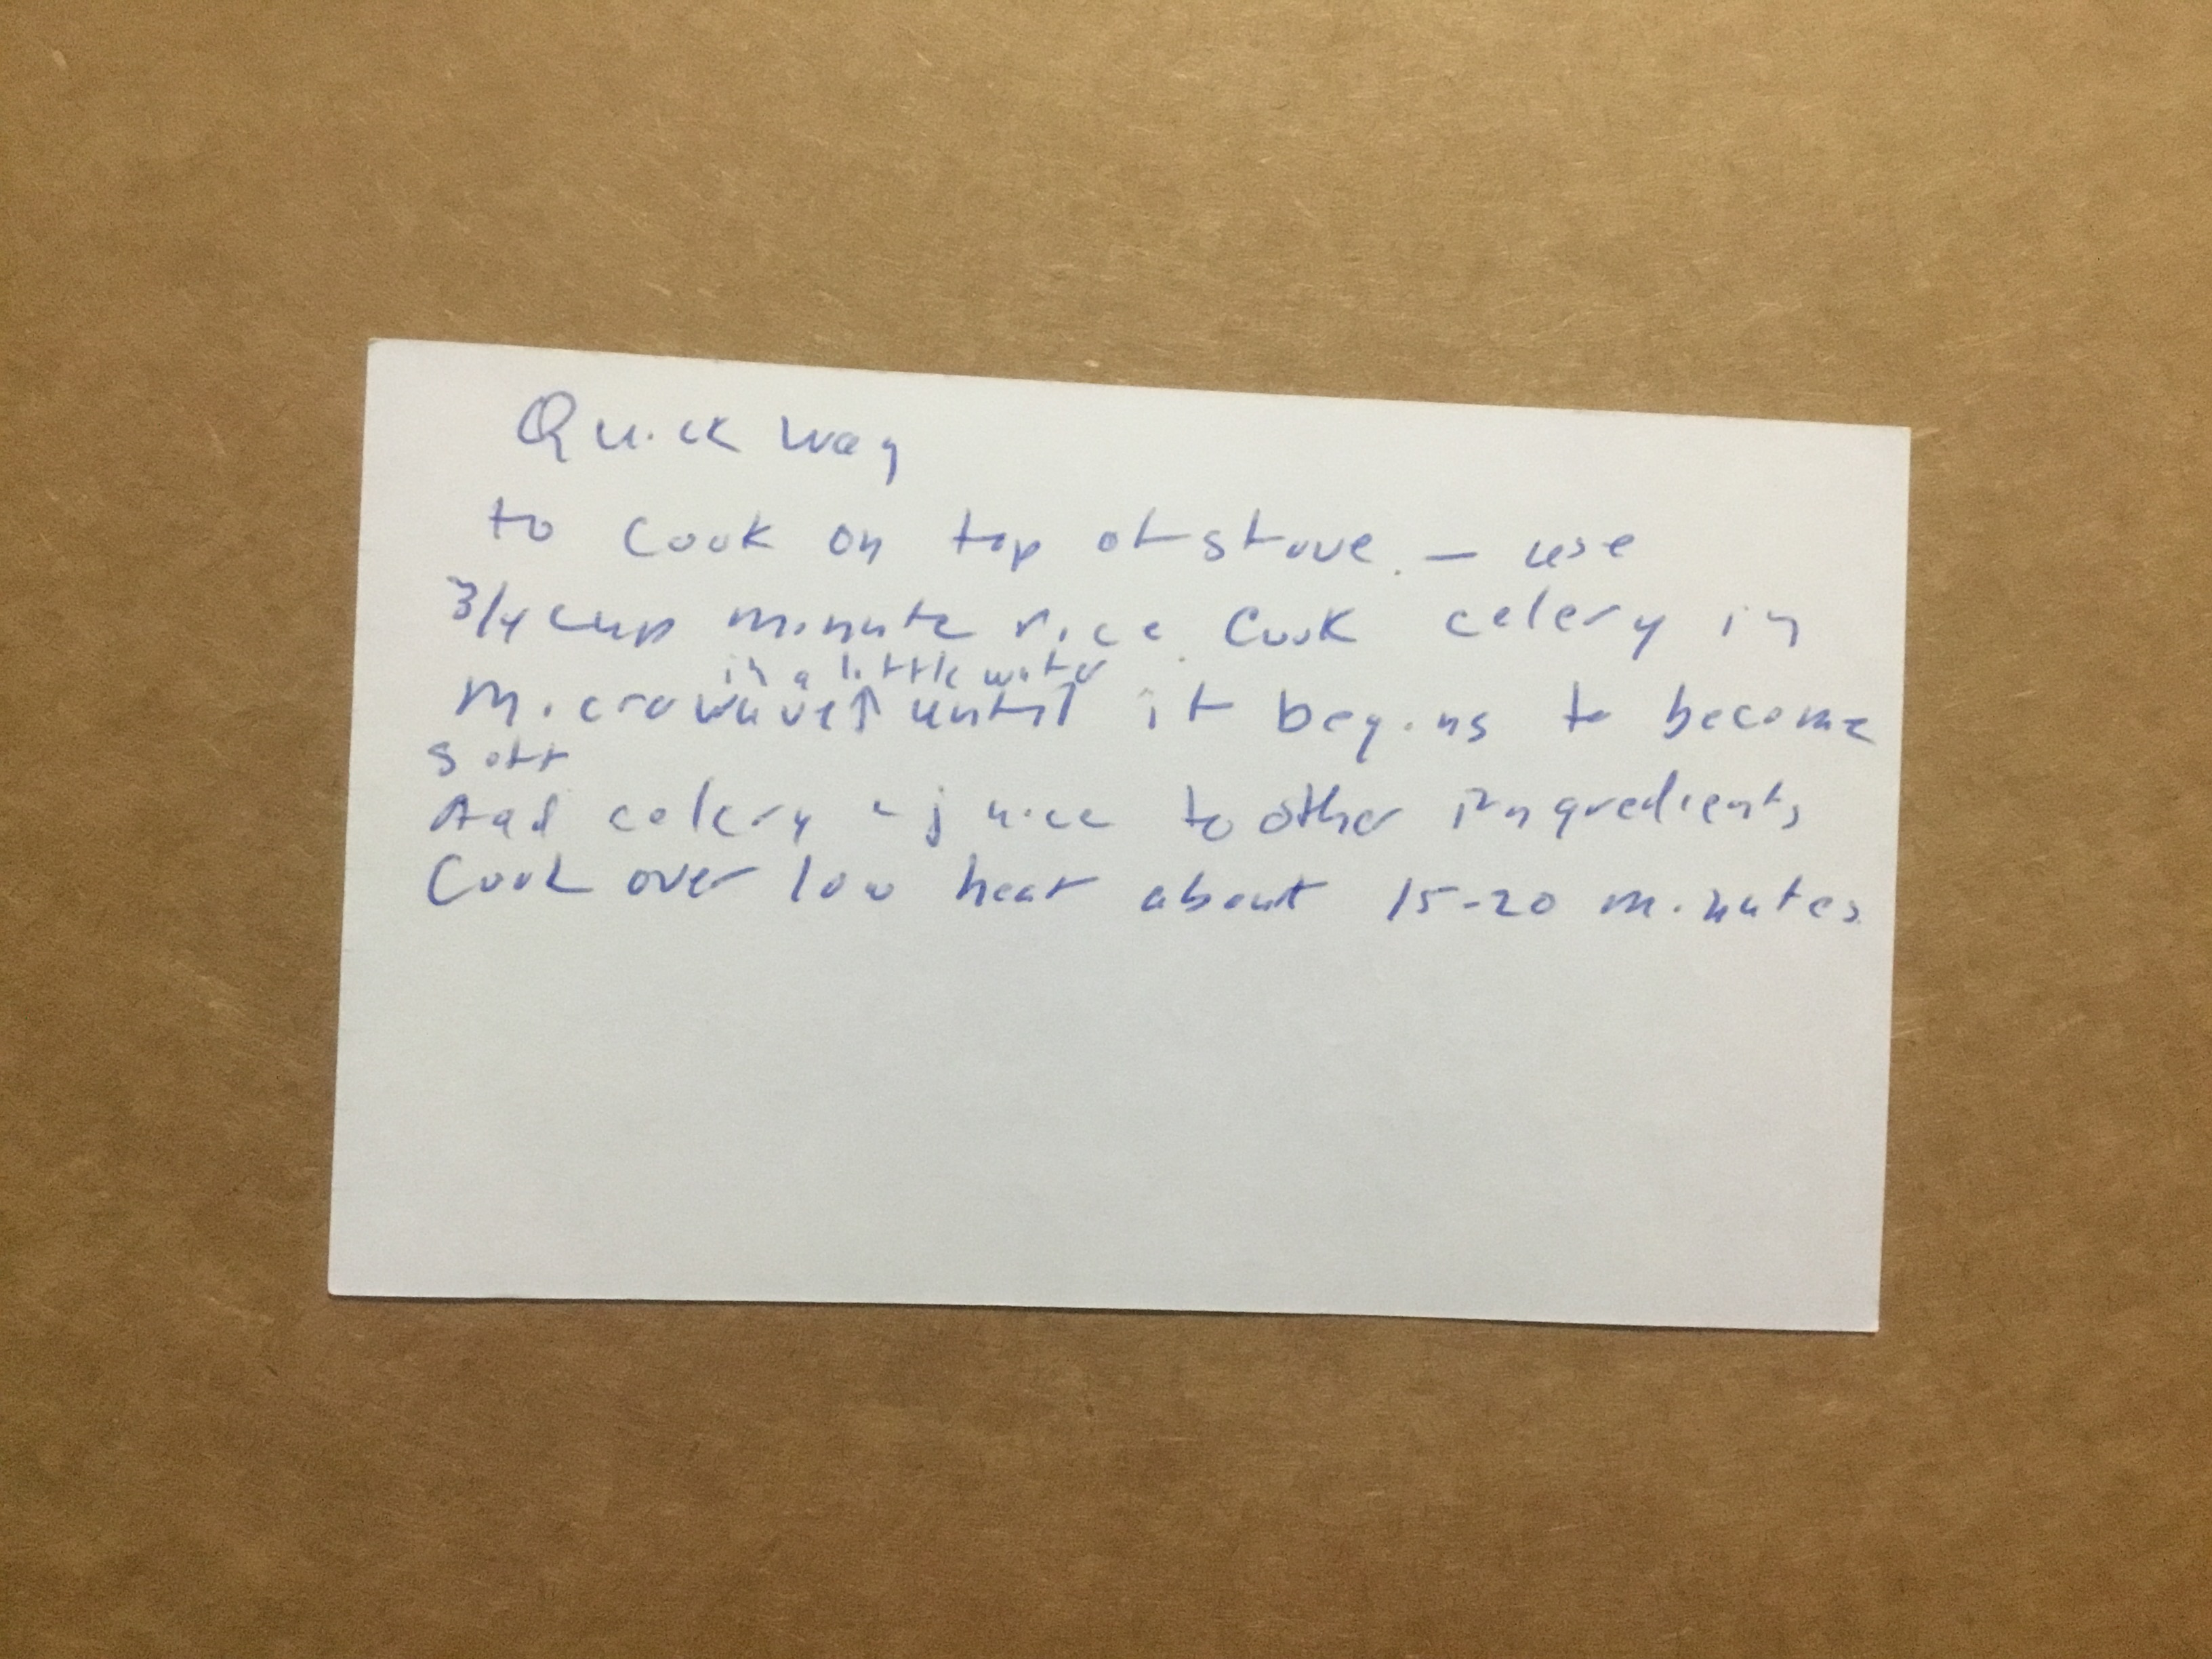 Quick way
to cook on top of stove. — use
3/4 cup minute rice. Cook celery in
in a little water
microwave ↑ until it begins to become
soft
Add celery - juice to other ingredients
Cook over low heat about 15-20 minutes